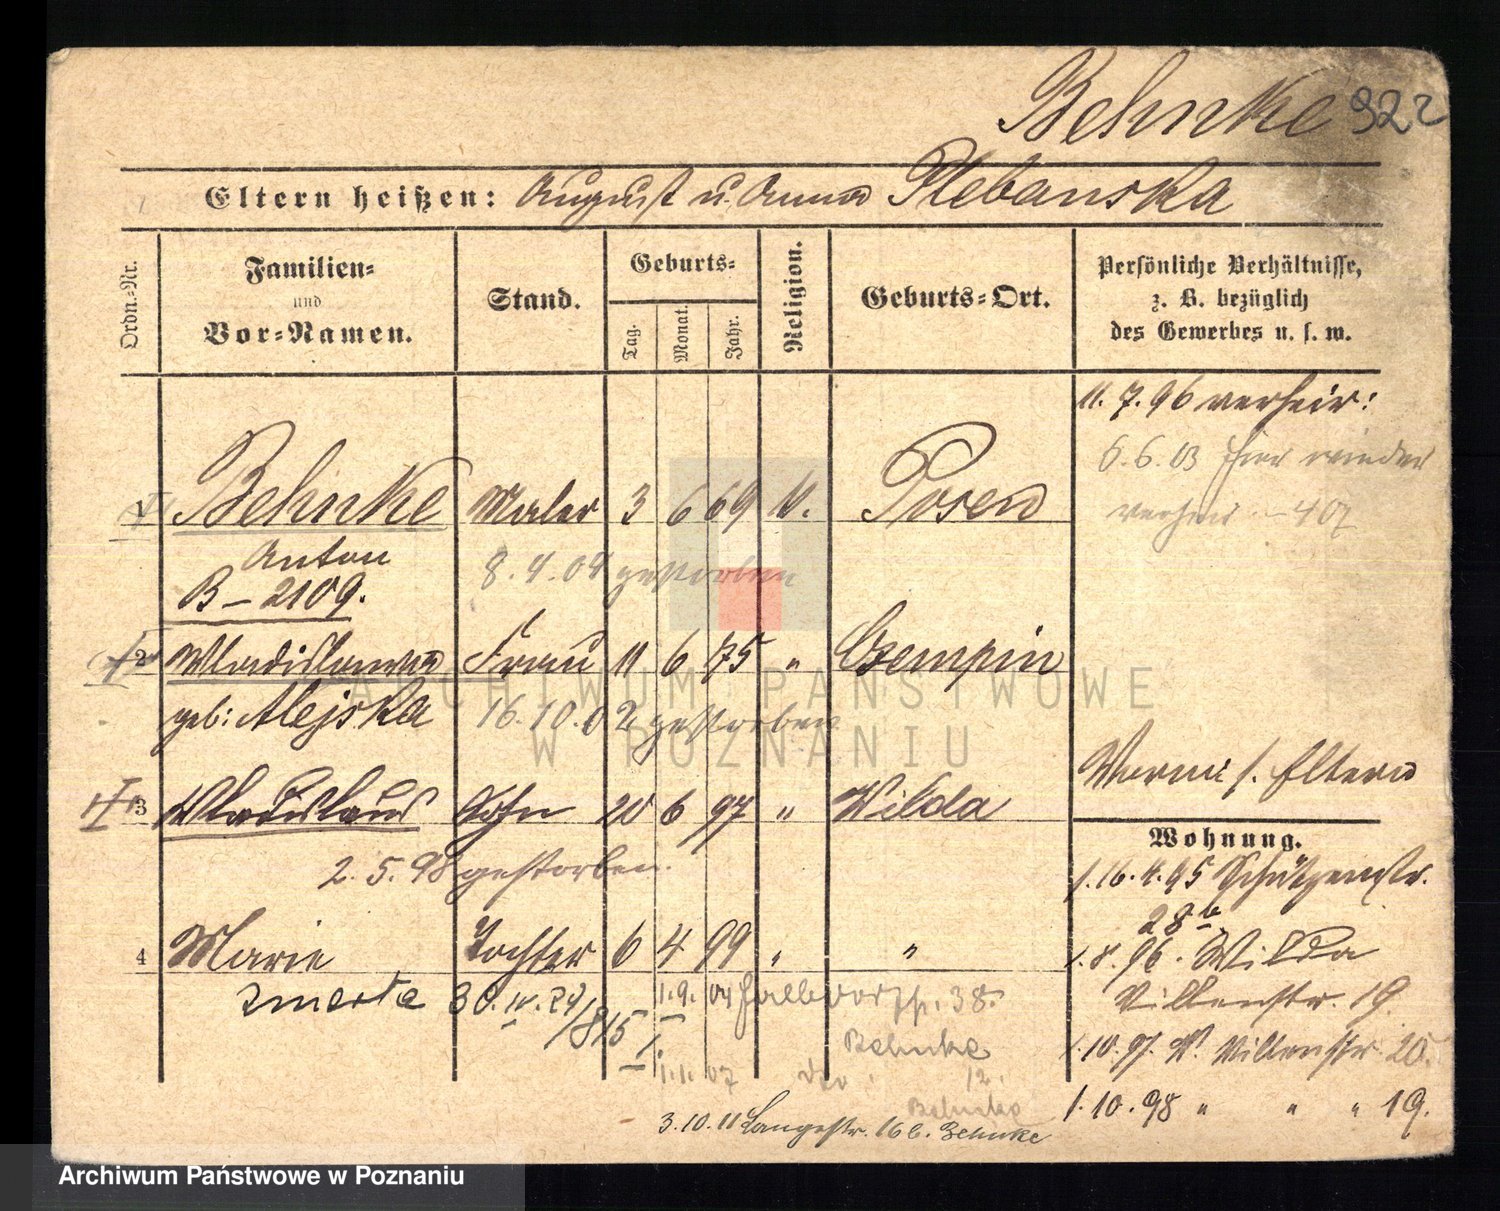 Behnke 922
Eltern heißen: August u. Anna Plebanska
Ordn.-Nr.
Familien-
und
Vor-Namen.
Stand.
Geburts-
Tag.
Monat.
Jahr.
Religion.
Geburts-Ort.
Persönliche Verhältnisse,
z. B. bezüglich
des Gewerbes u. s. w.
11. 7. 96 verheir:
6.6.03 hier wieder
verheir
407
1 Behnke Maler 3 6 69 k. Posen
Anton
8.4.04 gestorben
B – 2109.
2 Wladislawa Frau 11 6 75 " Czempin
geb: Alejska
16.10.02 gestorben
3 Wladislaus Sohn 20 6 97 " Wilda
2. 5. 98 gestorben.
4 Marie Tochter 6 4 99 " "
zmarła 30.IV.24/815 I.
1.9.04 Halbdorfstr. 38.
Behnke
1.1.07 12.
Behnke
3.10.11 Langestr. 16 b. Behnke
s. Eltern
Wohnung.
1. 16.4.95 Schützenstr.
28b
1.8.96. Wilda
Villenstr. 19.
1.10.97. W. Villenstr 20.
1.10.98 " " " 19.
ARCHIWUM PAŃSTWOWE
W POZNANIU
Archiwum Państwowe w Poznaniu